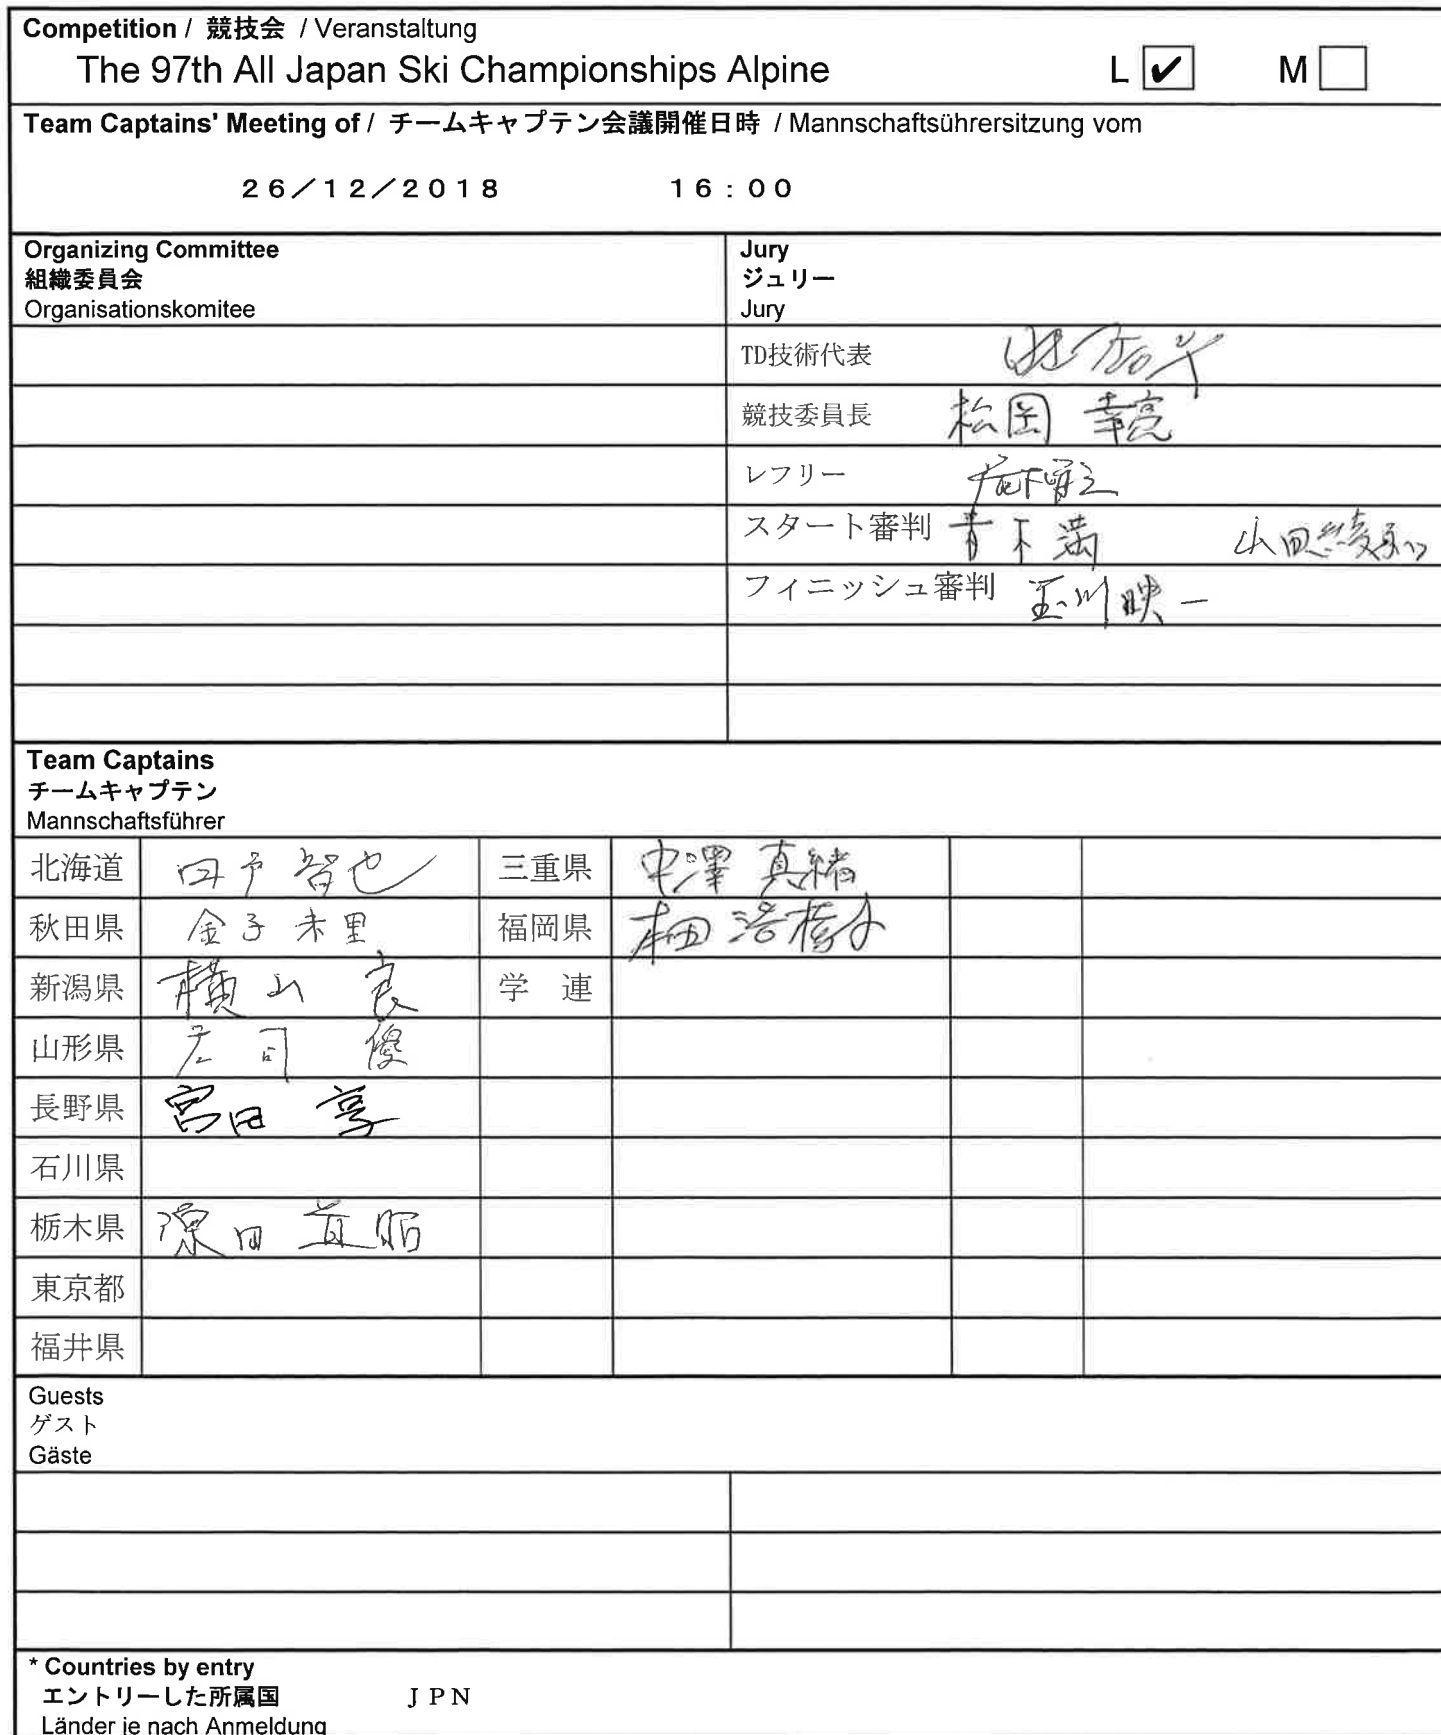 Competition / 競技会 / Veranstaltung
The 97th All Japan Ski Championships Alpine L ✔ M
Team Captains' Meeting of / チームキャプテン会議開催日時 / Mannschaftsührersitzung vom
26/12/2018 16:00
Organizing Committee
組織委員会
Organisationskomitee
Jury
ジュリー
Jury
TD技術代表
競技委員長 松岡 幸亮
レフリー
スタート審判 青木 満 山田
フィニッシュ審判 玉川映一
Team Captains
チームキャプテン
Mannschaftsführer
北海道 智也 三重県 中澤 真緒
秋田県 金子未里 福岡県 本田
新潟県 横山 良 学 連
山形県 庄司 優
長野県 宮田 享
石川県
栃木県
東京都
福井県
Guests
ゲスト
Gäste
* Countries by entry
エントリーした所属国 JPN
Länder je nach Anmeldung